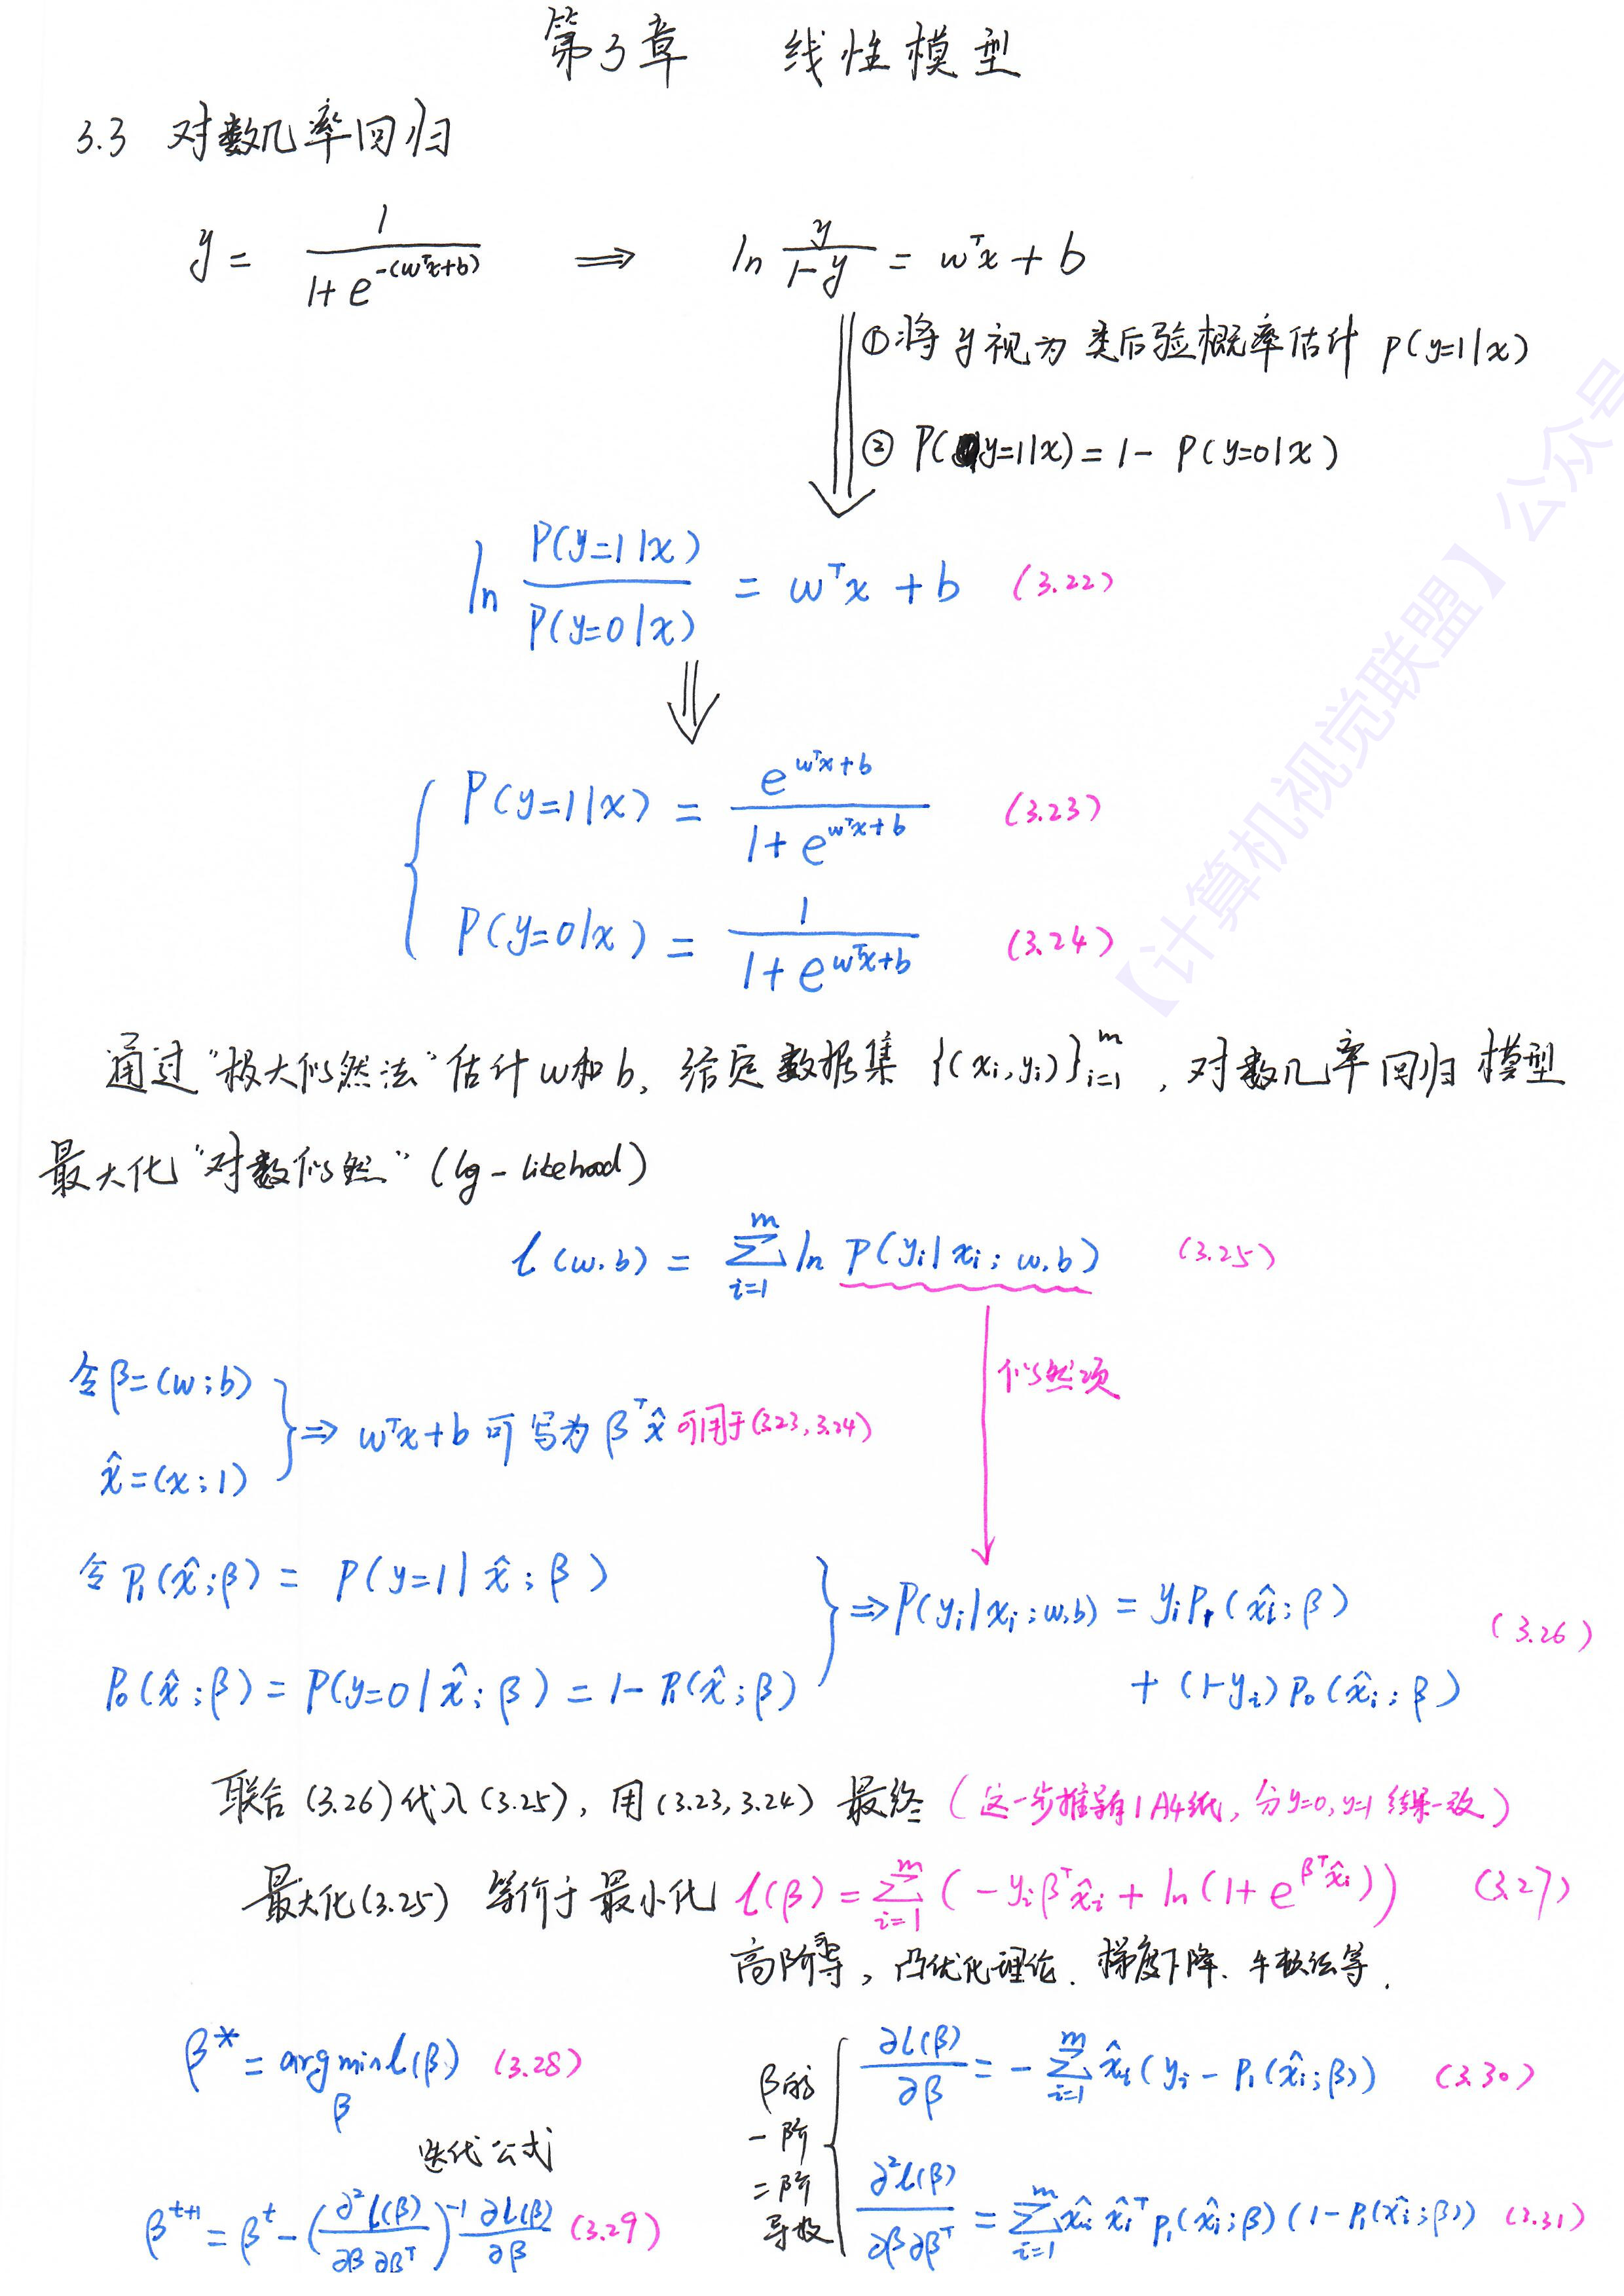 第3章 线性模型
3.3 对数几率回归
y = 1 / (1 + e^{-(wᵀx+b)}) ⟹ ln y/(1-y) = wᵀx + b
①将y视为类后验概率估计 P(y=1|x)
② P(y=1|x) = 1 - P(y=0|x)
ln P(y=1|x) / P(y=0|x) = wᵀx + b (3.22)
P(y=1|x) = e^{wᵀx+b} / (1 + e^{wᵀx+b}) (3.23)
P(y=0|x) = 1 / (1 + e^{wᵀx+b}) (3.24)
通过"极大似然法"估计w和b, 给定数据集 {(xᵢ,yᵢ)}ᵢ₌₁ᵐ , 对数几率回归模型
最大化"对数似然" (lg-likehood)
l(w.b) = ∑_{i=1}^{m} ln P(yᵢ|xᵢ; w.b) (3.25)
似然项
令β=(w;b)
x̂=(x;1)
⇒ wᵀx+b 可写为 βᵀx̂ 可用于(3.23,3.24)
令 P₁(x̂;β) = P(y=1|x̂;β)
P₀(x̂;β) = P(y=0|x̂;β) = 1-P₁(x̂;β)
⇒ P(yᵢ|xᵢ;w.b) = yᵢP₁(x̂ᵢ;β)
+ (1-yᵢ)P₀(x̂ᵢ;β) (3.26)
联合 (3.26)代入(3.25), 用(3.23,3.24) 最终 (这一步推导有1A4纸, 分y=0,y=1 结果一致)
最大化(3.25) 等价于最小化 l(β) = ∑_{i=1}^{m} (-yᵢβᵀx̂ᵢ + ln(1+e^{βᵀx̂ᵢ})) (3.27)
高阶导, 凸优化理论. 梯度下降. 牛顿法等.
β* = arg min_β l(β) (3.28)
迭代公式
β^{t+1} = β^t - (∂²l(β)/∂β∂βᵀ)^{-1} ∂l(β)/∂β (3.29)
β的
一阶
二阶
导数
∂l(β)/∂β = -∑_{i=1}^{m} x̂ᵢ(yᵢ - P₁(x̂ᵢ;β)) (3.30)
∂²l(β)/∂β∂βᵀ = ∑_{i=1}^{m} x̂ᵢx̂ᵢᵀ P₁(x̂ᵢ;β)(1-P₁(x̂ᵢ;β)) (3.31)
【计算机视觉联盟】公众号